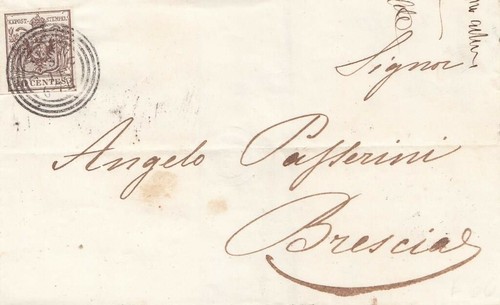 KKKPOST-STEMPEL
30 CENTES
Signor
Angelo Passerini
Brescia